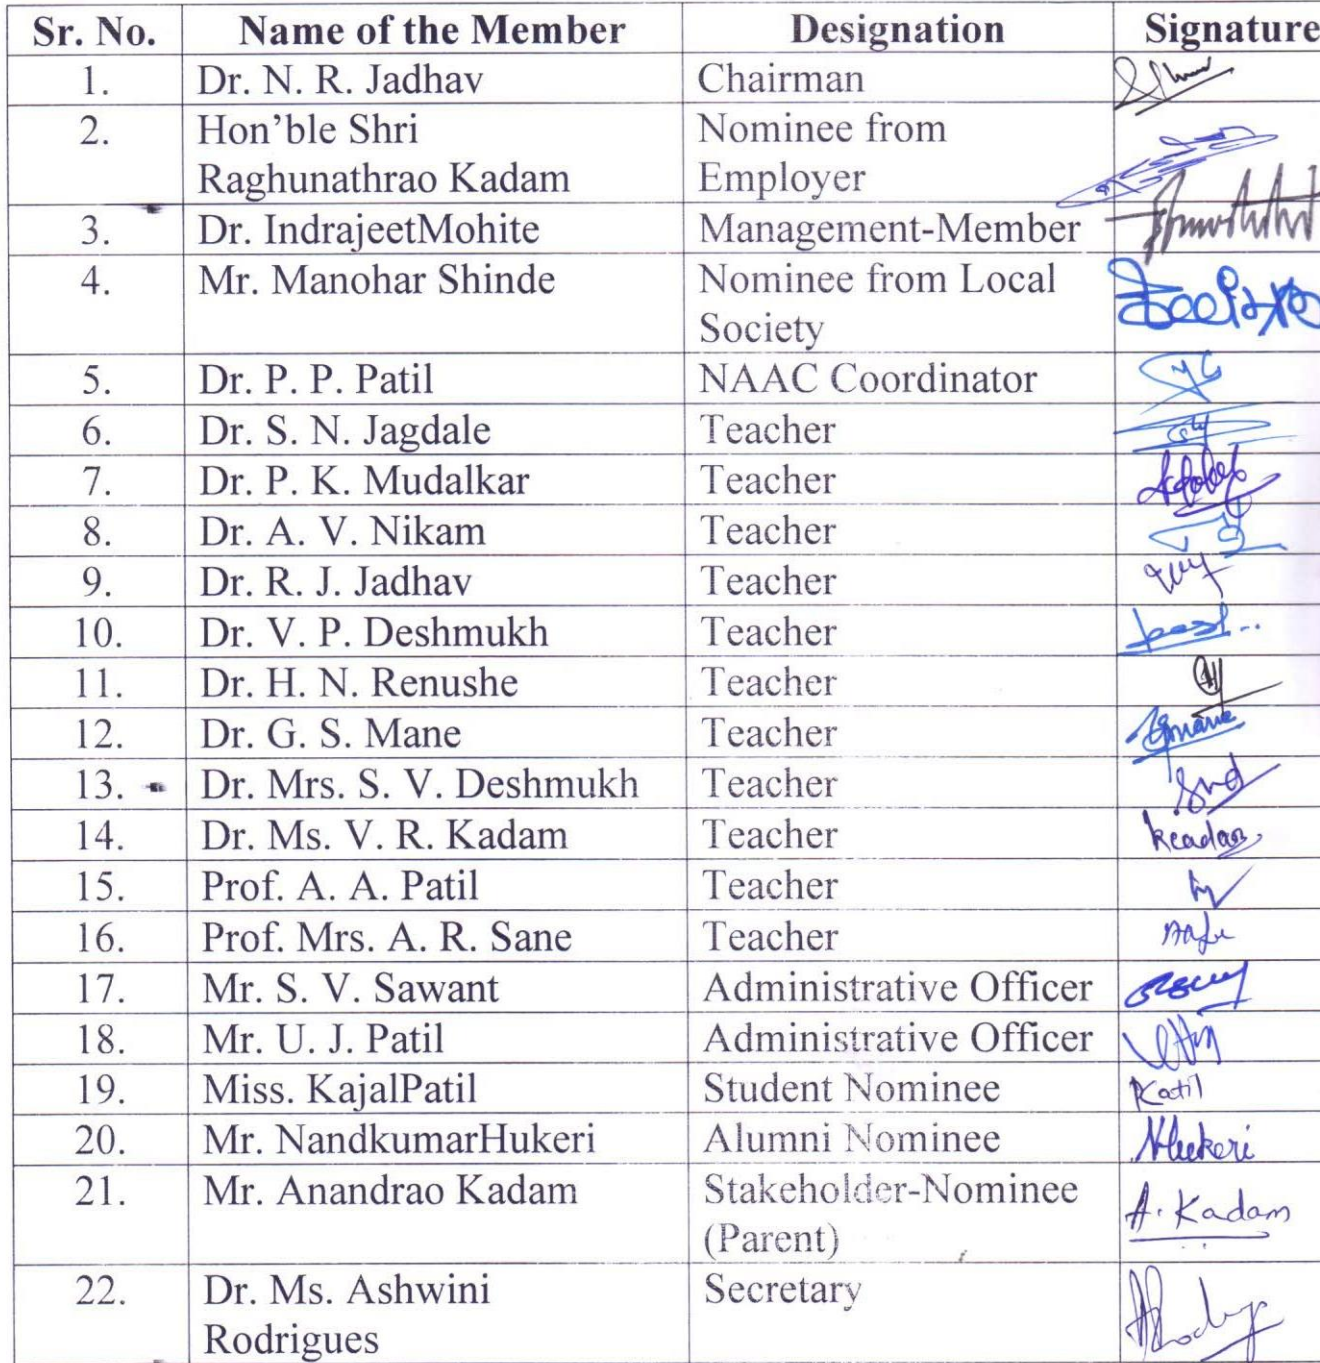 Sr. No. Name of the Member Designation Signature
1. Dr. N. R. Jadhav Chairman
2. Hon'ble Shri Nominee from
Raghunathrao Kadam Employer
3. Dr. IndrajeetMohite Management-Member
4. Mr. Manohar Shinde Nominee from Local
Society
5. Dr. P. P. Patil NAAC Coordinator
6. Dr. S. N. Jagdale Teacher
7. Dr. P. K. Mudalkar Teacher
8. Dr. A. V. Nikam Teacher
9. Dr. R. J. Jadhav Teacher
10. Dr. V. P. Deshmukh Teacher
11. Dr. H. N. Renushe Teacher
12. Dr. G. S. Mane Teacher Gmane
13. Dr. Mrs. S. V. Deshmukh Teacher
14. Dr. Ms. V. R. Kadam Teacher
15. Prof. A. A. Patil Teacher
16. Prof. Mrs. A. R. Sane Teacher
17. Mr. S. V. Sawant Administrative Officer
18. Mr. U. J. Patil Administrative Officer
19. Miss. KajalPatil Student Nominee
20. Mr. NandkumarHukeri Alumni Nominee NHukeri
21. Mr. Anandrao Kadam Stakeholder-Nominee A. Kadam
(Parent)
22. Dr. Ms. Ashwini Secretary
Rodrigues